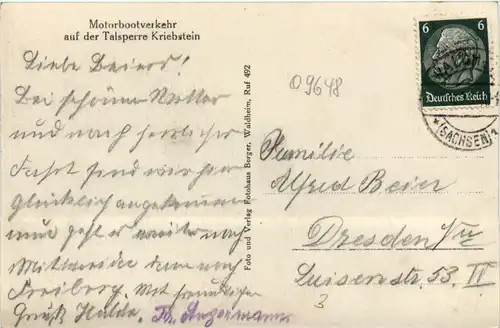 Motorbootverkehr
auf der Talsperre Kriebstein
Liebe Beiers!
Bei schönem Wetter
und nach herrlicher
Fahrt sind wir hier
glücklich angekommen
nun geht es weiter nach
Mittweida dann nach
Freiberg. Mit freundlichem
Gruß
Foto und Verlag Fotohaus Berger, Waldheim, Ruf 492
09648
6 6
Deutsches Reich
(SACHSEN)
Familie
Alfred Beier
Dresden
Luisenstr. 53. IV
3